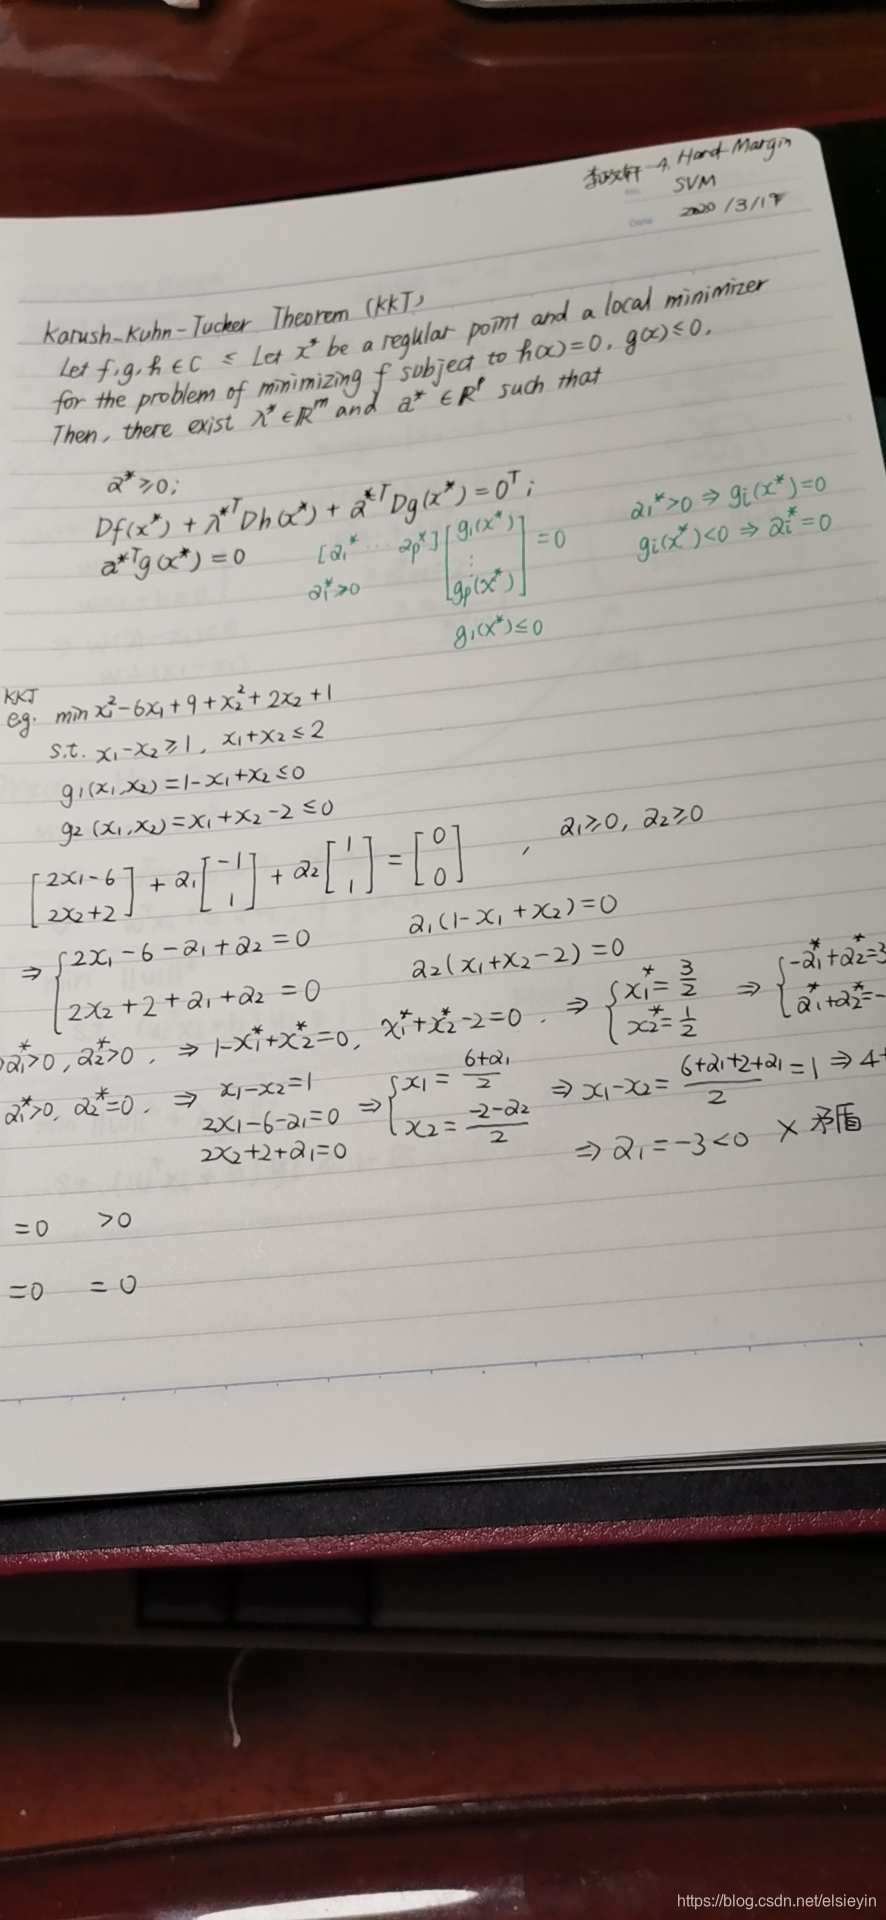 李政轩-4. Hard Margin
SVM
2020/3/19
Karush-Kuhn-Tucker Theorem (KKT)
Let f,g,h ∈ C ≤ Let x* be a regular point and a local minimizer
for the problem of minimizing f subject to h(x)=0, g(x)≤0.
Then, there exist λ* ∈ R^m and a* ∈ R^p such that
a*≥0;
Df(x*) + λ*ᵀDh(x*) + a*ᵀDg(x*) = 0ᵀ;
a*ᵀg(x*) = 0
[a₁* ... ap*] [g₁(x*) ⋮ gp(x*)] = 0
aᵢ*≥0
g₁(x*)≤0
aᵢ*>0 ⇒ gᵢ(x*)=0
gᵢ(x*)<0 ⇒ aᵢ*=0
KKT
eg. min x₁²-6x₁+9+x₂²+2x₂+1
s.t. x₁-x₂≥1, x₁+x₂≤2
g₁(x₁,x₂)=1-x₁+x₂≤0
g₂(x₁,x₂)=x₁+x₂-2≤0
[2x₁-6 2x₂+2] + a₁[-1 1] + a₂[1 1] = [0 0] , a₁≥0, a₂≥0
⇒ {2x₁-6-a₁+a₂=0 a₁(1-x₁+x₂)=0
2x₂+2+a₁+a₂=0 a₂(x₁+x₂-2)=0
a₁*>0, a₂*>0. ⇒ 1-x₁*+x₂*=0, x₁*+x₂*-2=0. ⇒ {x₁*=3/2 x₂*=1/2 ⇒ {-a₁*+a₂*=3 a₁*+a₂*=-
a₁*>0, a₂*=0. ⇒ x₁-x₂=1
2x₁-6-a₁=0 ⇒ {x₁=(6+a₁)/2 x₂=(-2-a₂)/2 ⇒ x₁-x₂=(6+a₁+2+a₁)/2=1 ⇒ 4+
2x₂+2+a₁=0
⇒ a₁=-3<0 × 矛盾
=0 >0
=0 =0
https://blog.csdn.net/elsieyin